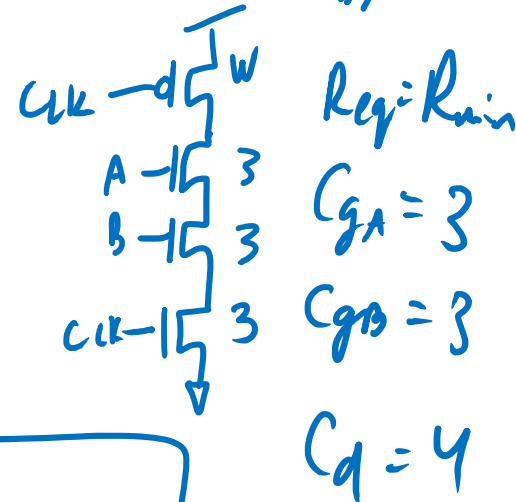 CLK W
A 3
B 3
CLK 3
Req = Rmin
CgA = 3
CgB = 3
Cd = 4